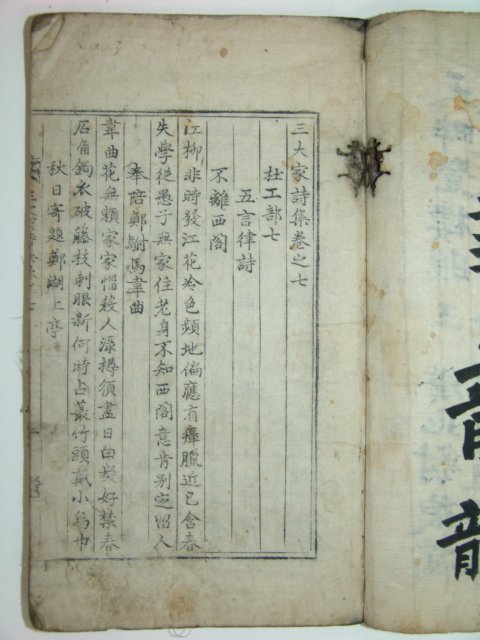 三大家詩集卷之七
杜工部七
五言律詩
不離西閣
江柳非時發江花冷色頻地偏應有瘴臘近已含春
失學從愚子無家住老身不知西閣意肯別定留人
奉陪鄭駙馬韋曲
韋曲花無賴家家惱殺人淥樽須盡日白髮好禁春
石角鉤衣破藤枝刺眼新何時占叢竹頭戴小烏巾
秋日寄題鄭湖上亭